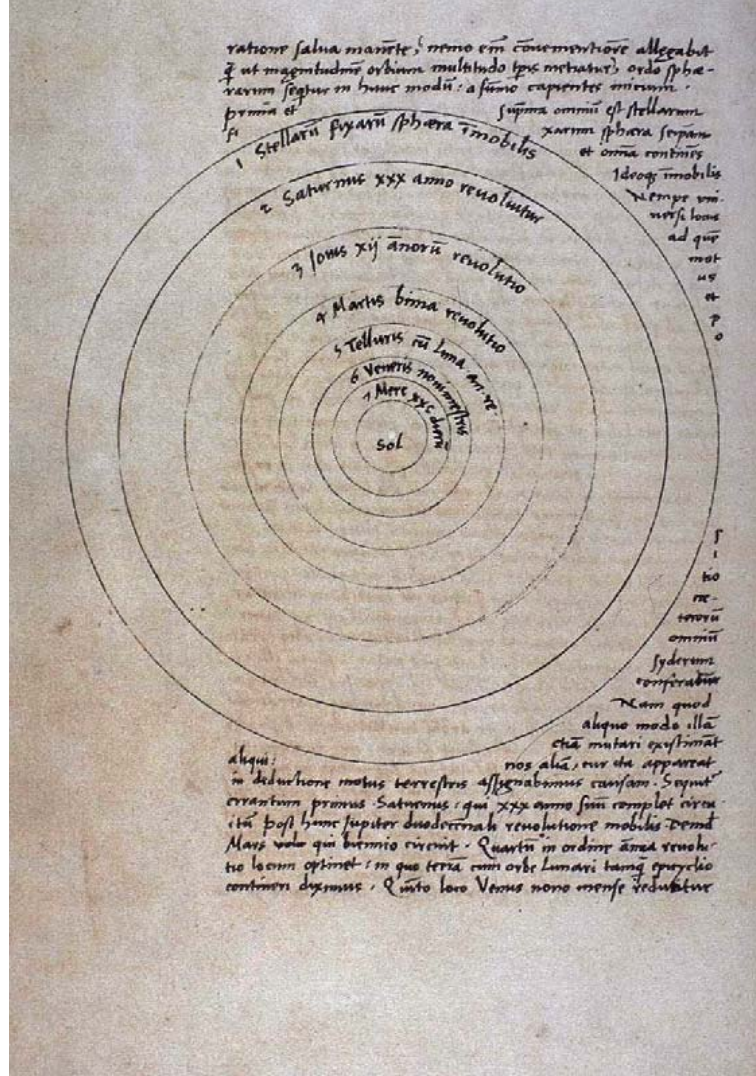 ratione salva manente, nemo em̄ cōvenientiorē allegabit
q̄ ut magnitudinē orbium multitudo tp̄is metiatur, ordo sphæ-
rarum seqtur in hunc modū: a sūmo capientes inicium.
prima et suprema omniū est stellarum
fi xarum sphæra seipsam
et omīa continēs
Ideoqꝫ īmobilis
Nempe vni-
versi locus
ad quē
mot
us
et
p
o
1 Stellarū fixarū sphæra īmobilis
2 Saturnus xxx anno revoluitur
3 Jovis xij ānorū revolutio
4 Martis bima revolutio
5 Telluris cū Luna an. re.
6 Veneris nonimestris
7 Merc xxc dierū
Sol
s
i
tio
cæ-
terorū
omniū
syderum
conferatur
Nam quod
aliquo modo illā
etiā mutari existimāt
aliqui: nos aliā, cur ita appareat
in deductione motus terrestris assignabimus causam. Sequit
errantium primus Saturnus: qui xxx anno suū complet circu
itū Post hunc Jupiter duodecennali revolutione mobilis Deīd
Mars qui biennio circuit. Quartū in ordine ānua revolu-
tio locum optinet: in quo terrā cum orbe Lunari tamq̄ epicyclio
contineri diximus. Quīto loco Venus nono mense reducitur